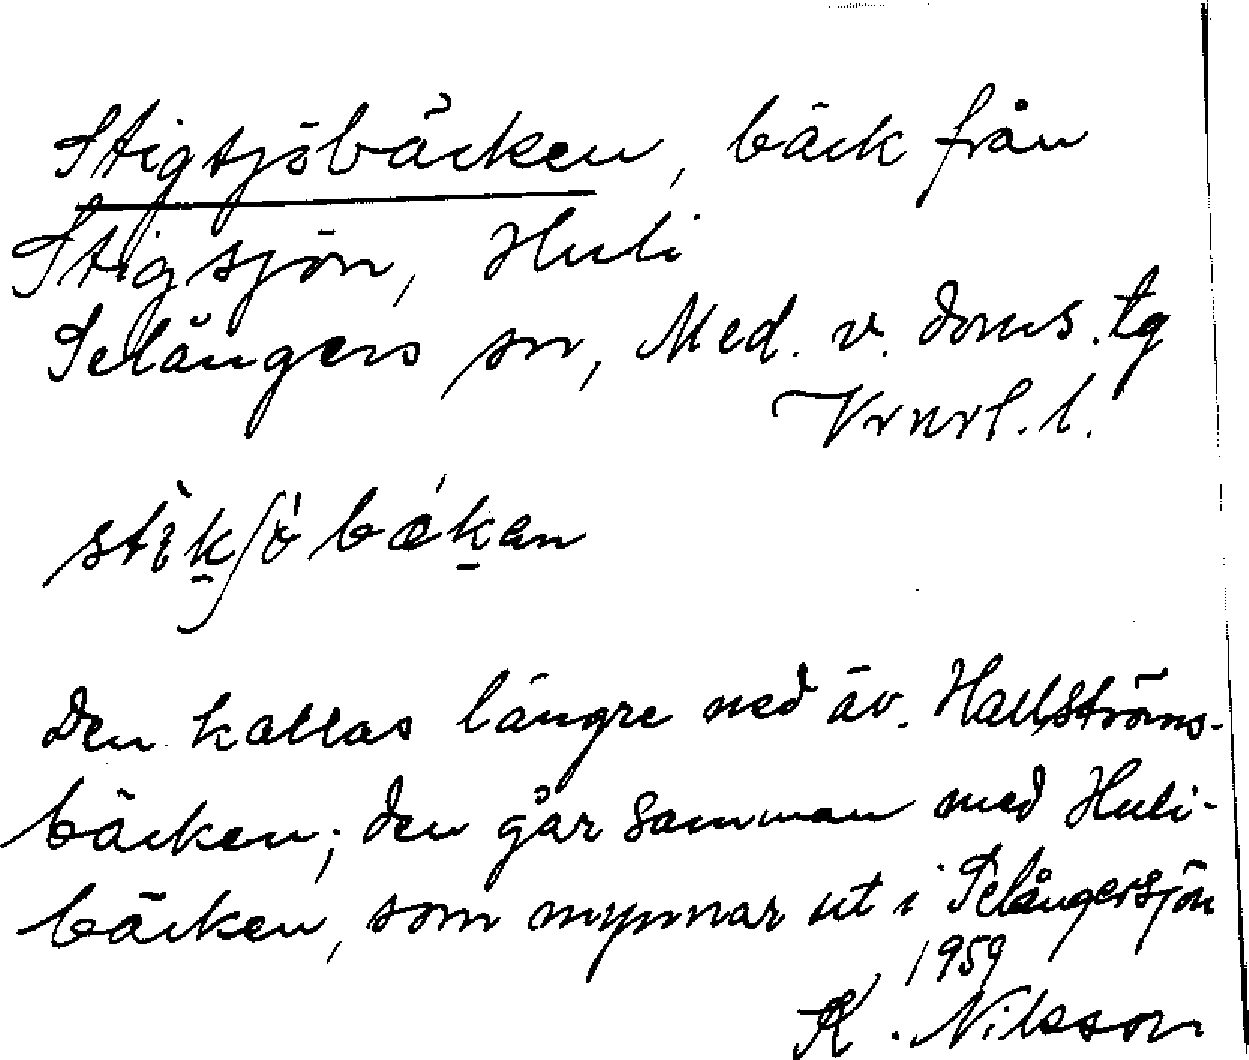 Stigsjöbäcken, bäck från
Stigsjön, Huli
Selångers sn, Med. v. doms. tg
Vrnrl. l.
stìkʃö bǽkan
Den kallas längre ned äv. Hallströms-
bäcken; den går samman med Huli-
bäcken, som mynnar ut i Selångersjön
1959
K. Nilsson